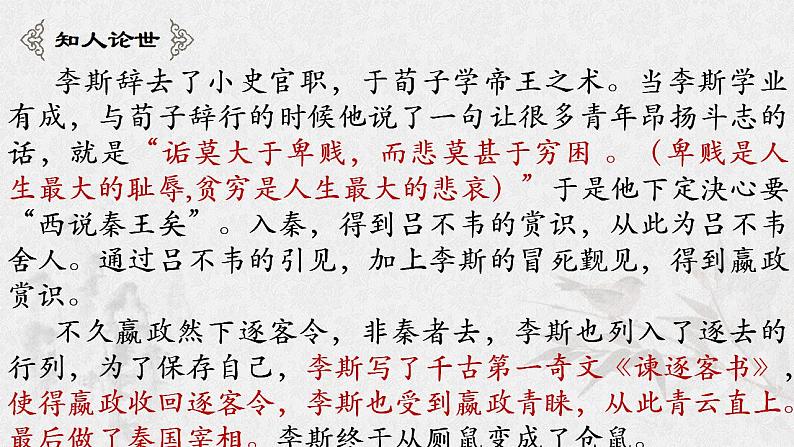 知人论世
李斯辞去了小史官职，于荀子学帝王之术。当李斯学业
有成，与荀子辞行的时候他说了一句让很多青年昂扬斗志的
话，就是“诟莫大于卑贱，而悲莫甚于穷困 。（卑贱是人
生最大的耻辱,贫穷是人生最大的悲哀）”于是他下定决心要
“西说秦王矣”。入秦，得到吕不韦的赏识，从此为吕不韦
舍人。通过吕不韦的引见，加上李斯的冒死觐见，得到嬴政
赏识。
不久嬴政然下逐客令，非秦者去，李斯也列入了逐去的
行列，为了保存自己，李斯写了千古第一奇文《谏逐客书》，
使得嬴政收回逐客令，李斯也受到嬴政青睐，从此青云直上。
最后做了秦国宰相。李斯终于从厕鼠变成了仓鼠。